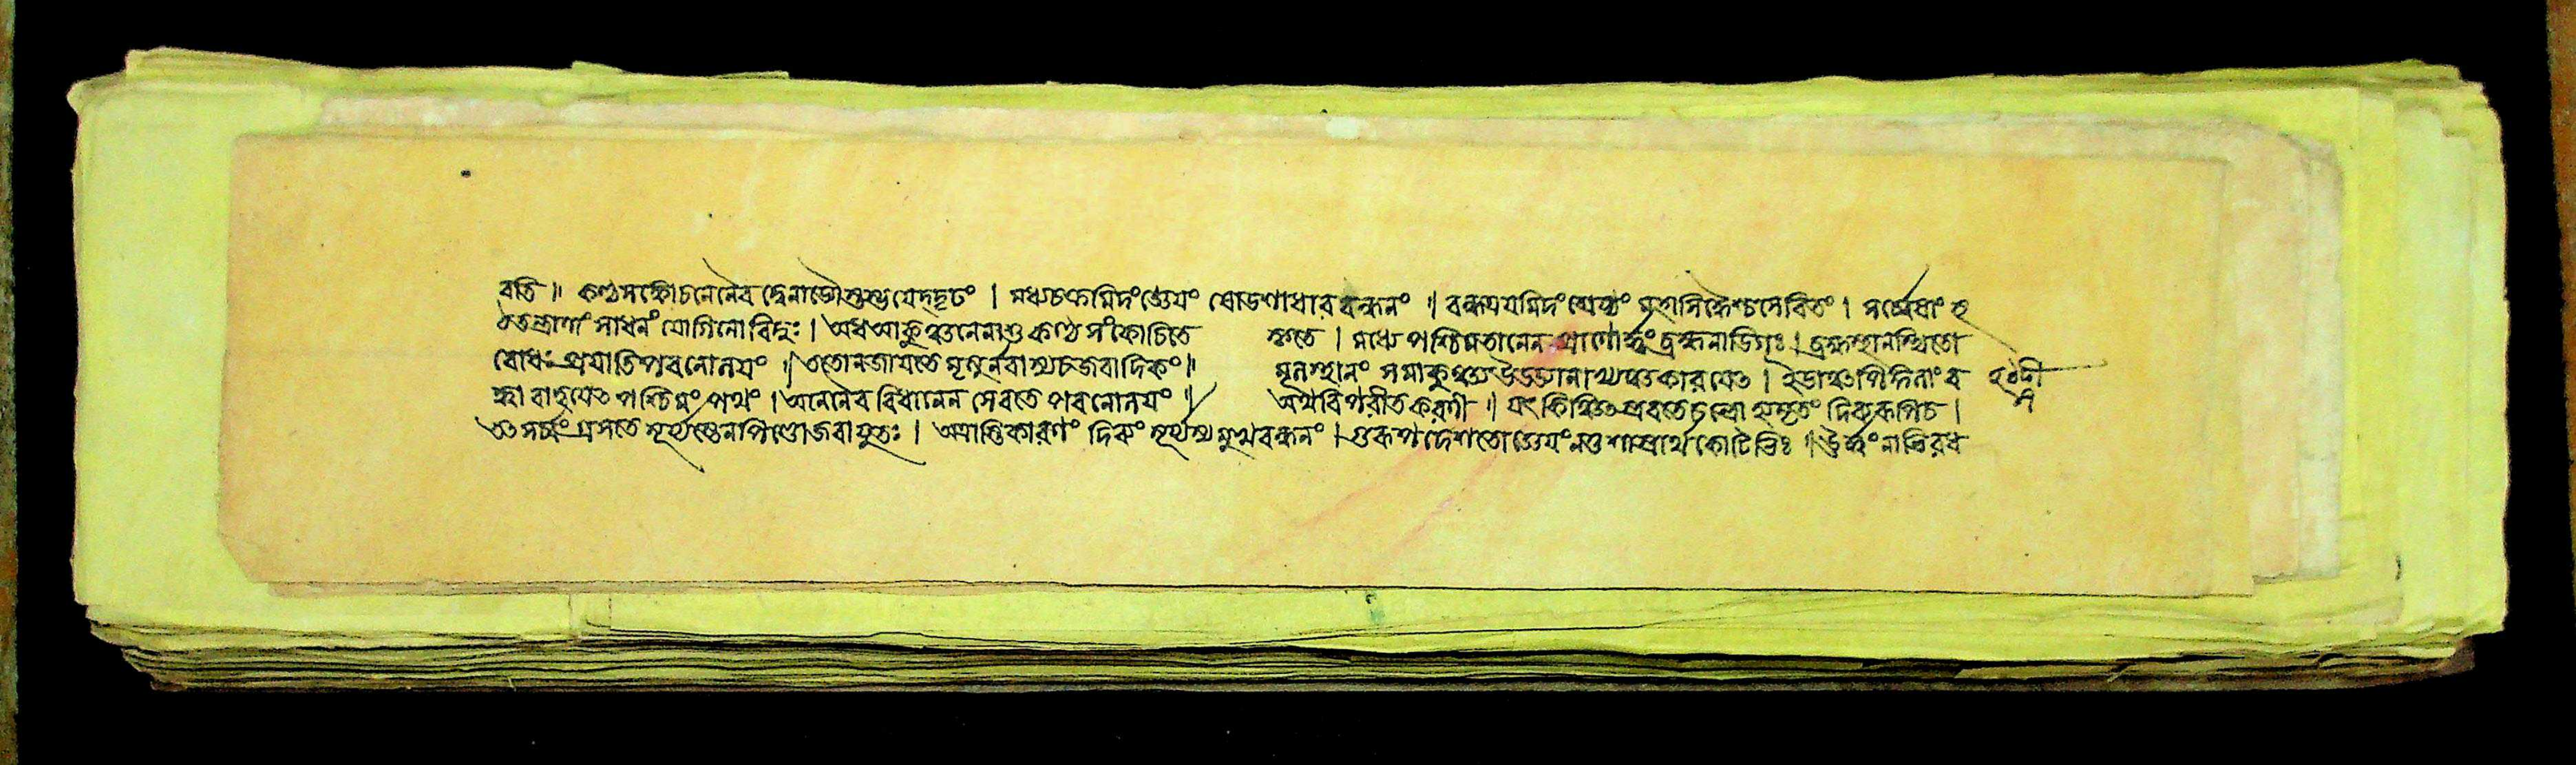 বতি ॥ কণ্ঠসঙ্কোচনেনৈব দ্বেনাড্যৌস্তম্ভয়েদ্দৃঢং । মধ্যচক্রমিদংজ্ঞেয়ং ষোডশাধারবন্ধনং ॥ বন্ধত্রয়মিদংশ্রেষ্ঠং মহাসিদ্ধৈশ্চসেবিতং । সর্ব্বেষাং হ
ঠতন্ত্রাণাং সাধনং যোগিনো বিদুঃ । অধআকুঞ্চনেনাশু কণ্ঠে সংকোচিতে কৃতে । মধ্যে পশ্চিমতানেন প্রাণো ব্রহ্মনাডিগঃ । ব্রহ্মস্থানস্থিতো
বোধঃ প্রযাতি পবনোলয়ং ॥ ততোনজায়তে মৃত্যুর্নবাস্যচজরাদিকং ॥ মূলস্থানং সমাকুঞ্চ্য উড্ডিয়ানাস্তু কারয়েৎ । ইডাঞ্চপিঙ্গলাং ব
দ্ধা বাহয়েৎ পশ্চিমং পথং । অনেনৈব বিধানেন সেবতে পবনোলয়ং ॥ অথবিপরীতকরণী ॥ যৎ কিঞ্চিৎ স্রবতেচন্দ্রো অমৃতং দিব্যরূপিচ ।
তৎ সর্ব্বং গ্রসতে সূর্য্যস্তেনপিণ্ডোজরাযুতঃ । অত্রাস্তিকারণং দিব্যং সূর্য্যস্য মুখবন্ধনং । গুরূপদেশতোজ্ঞেয়ংনতুশাস্ত্রার্থকোটিভিঃ ॥ ঊর্দ্ধং নাভিরধ
হঠদী